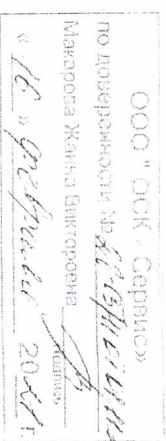 ООО "ОСК - Сервис»
по доверенности №
Макарова Жанна Викторовна
подпись
« 16 » февраля 20 г.